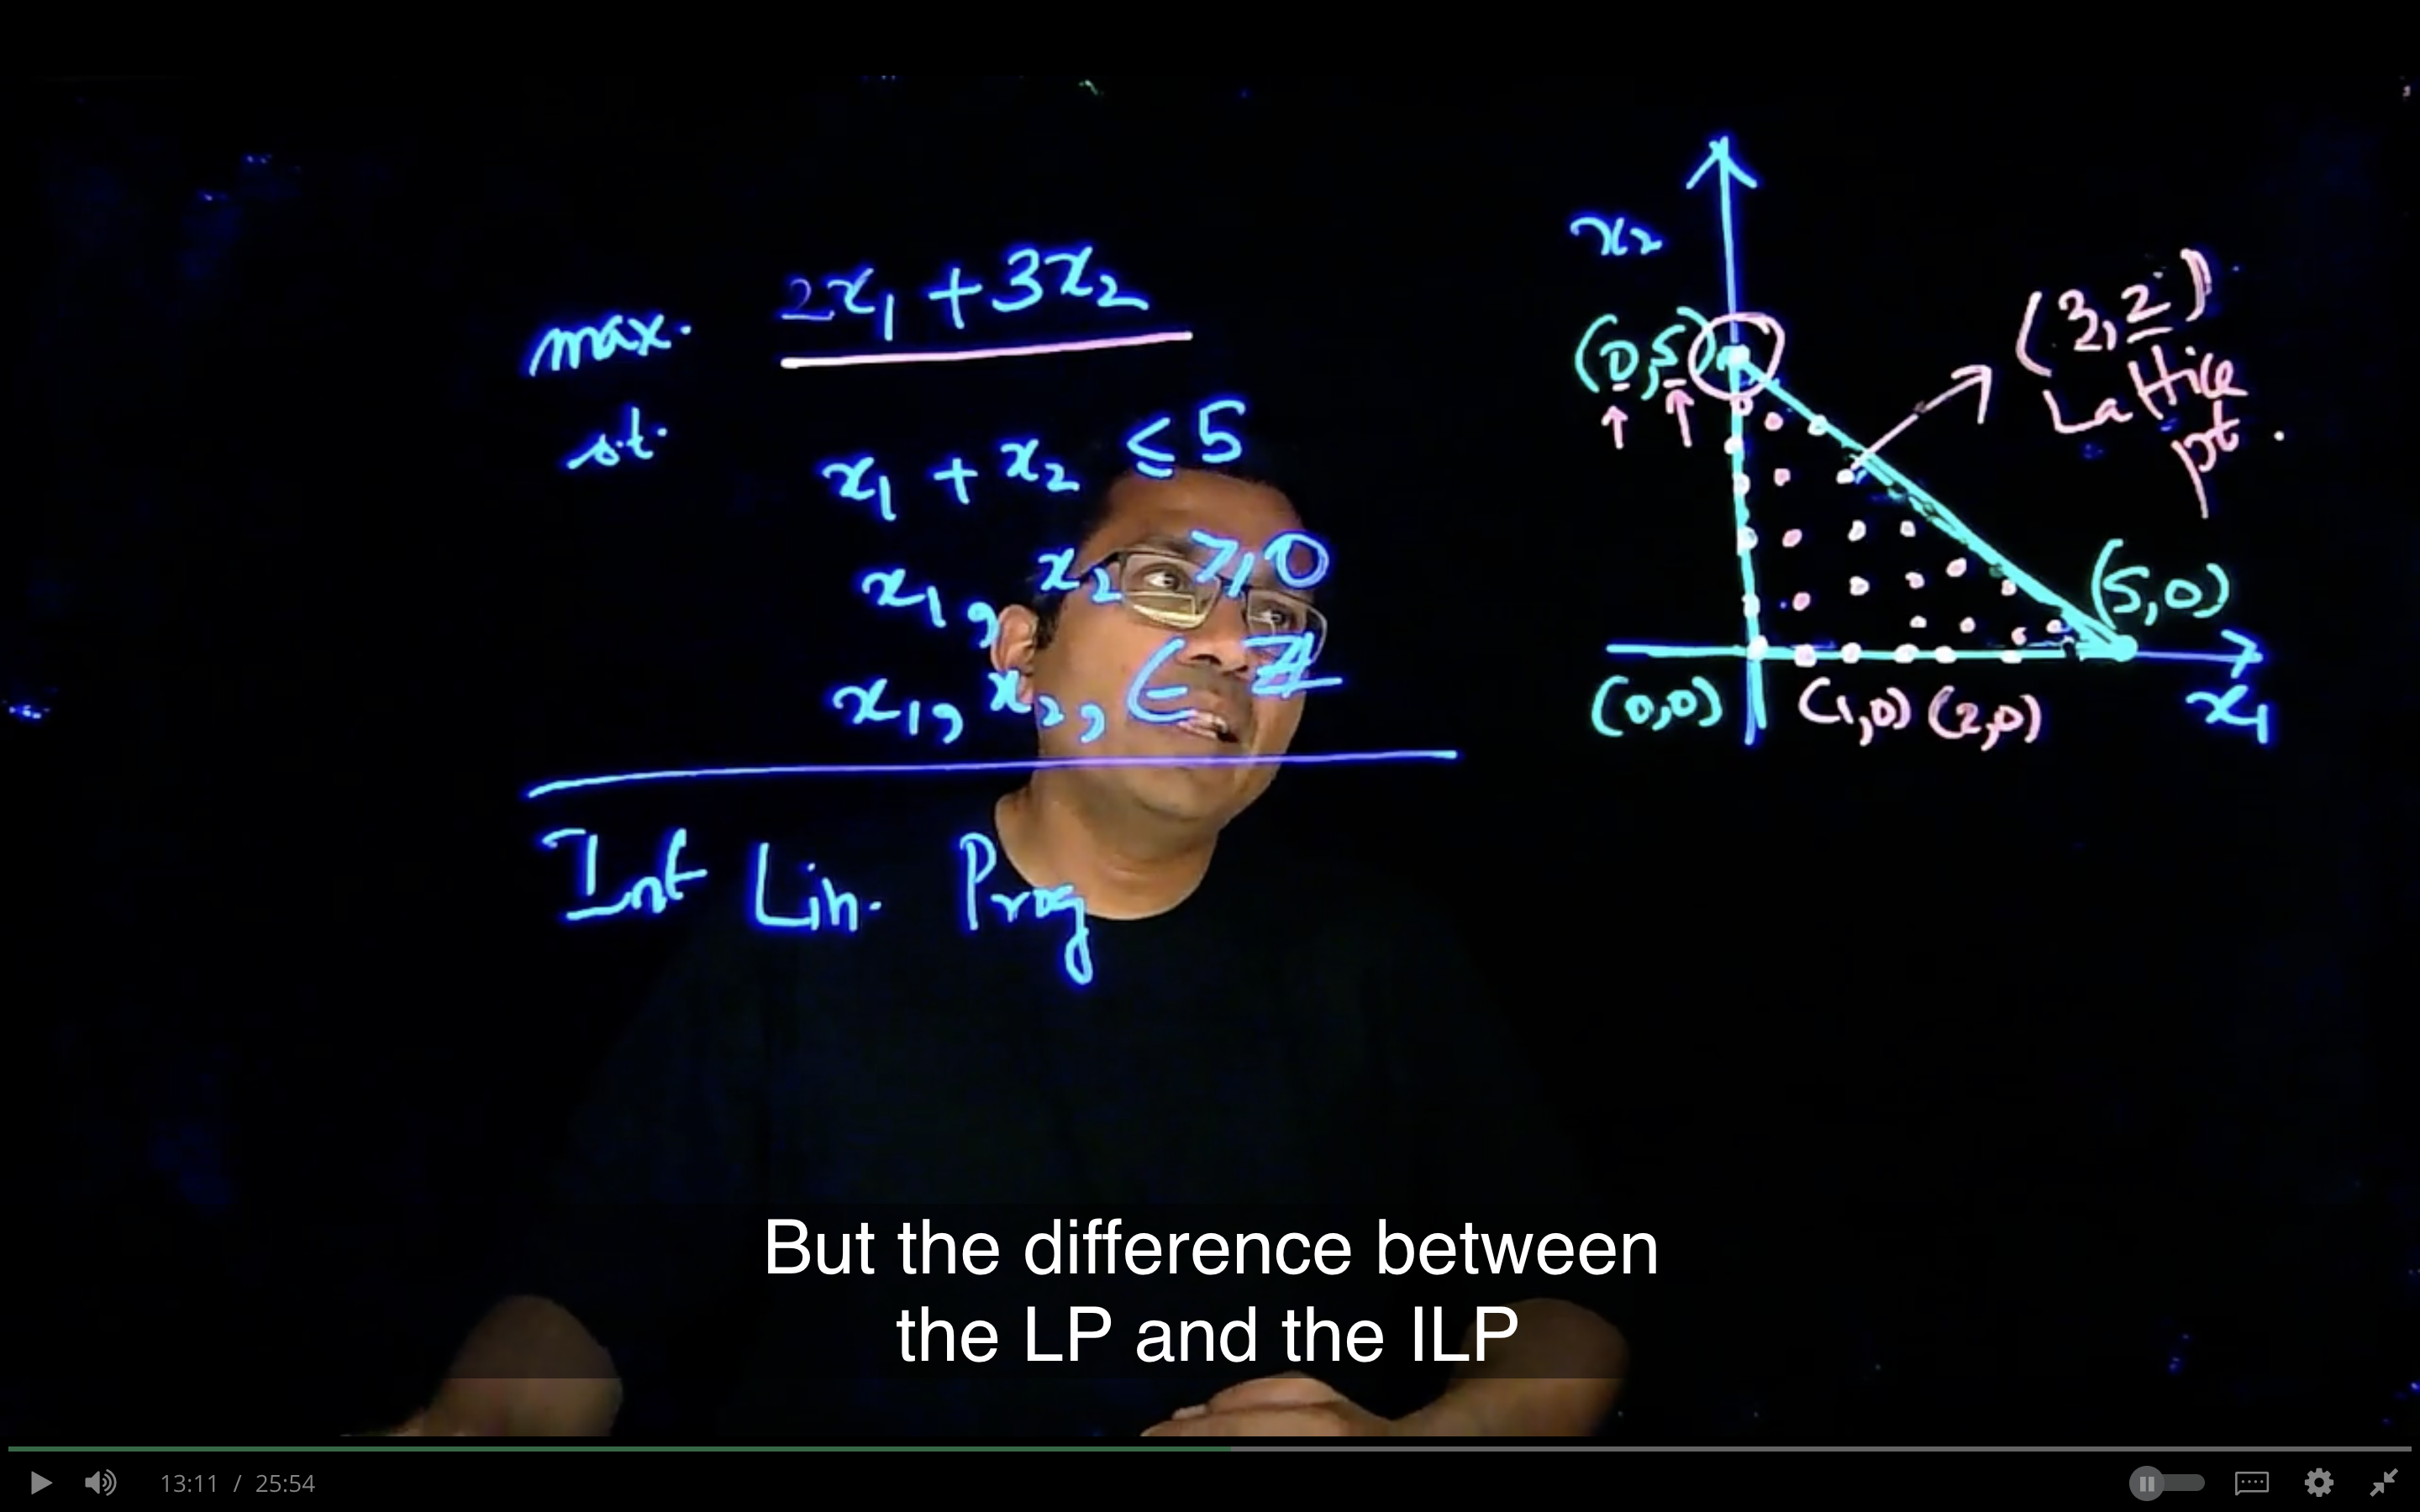 max. 2x₁ + 3x₂
s.t.
x₁ + x₂ ≤ 5
x₁, x₂ ≥ 0
x₁, x₂, ∈ ℤ
Int Lin. Prog
x₂
(0,5)
(3,2)
Lattice
pt.
(5,0)
(0,0) (1,0) (2,0)
x₁
But the difference between
the LP and the ILP
13:11 / 25:54